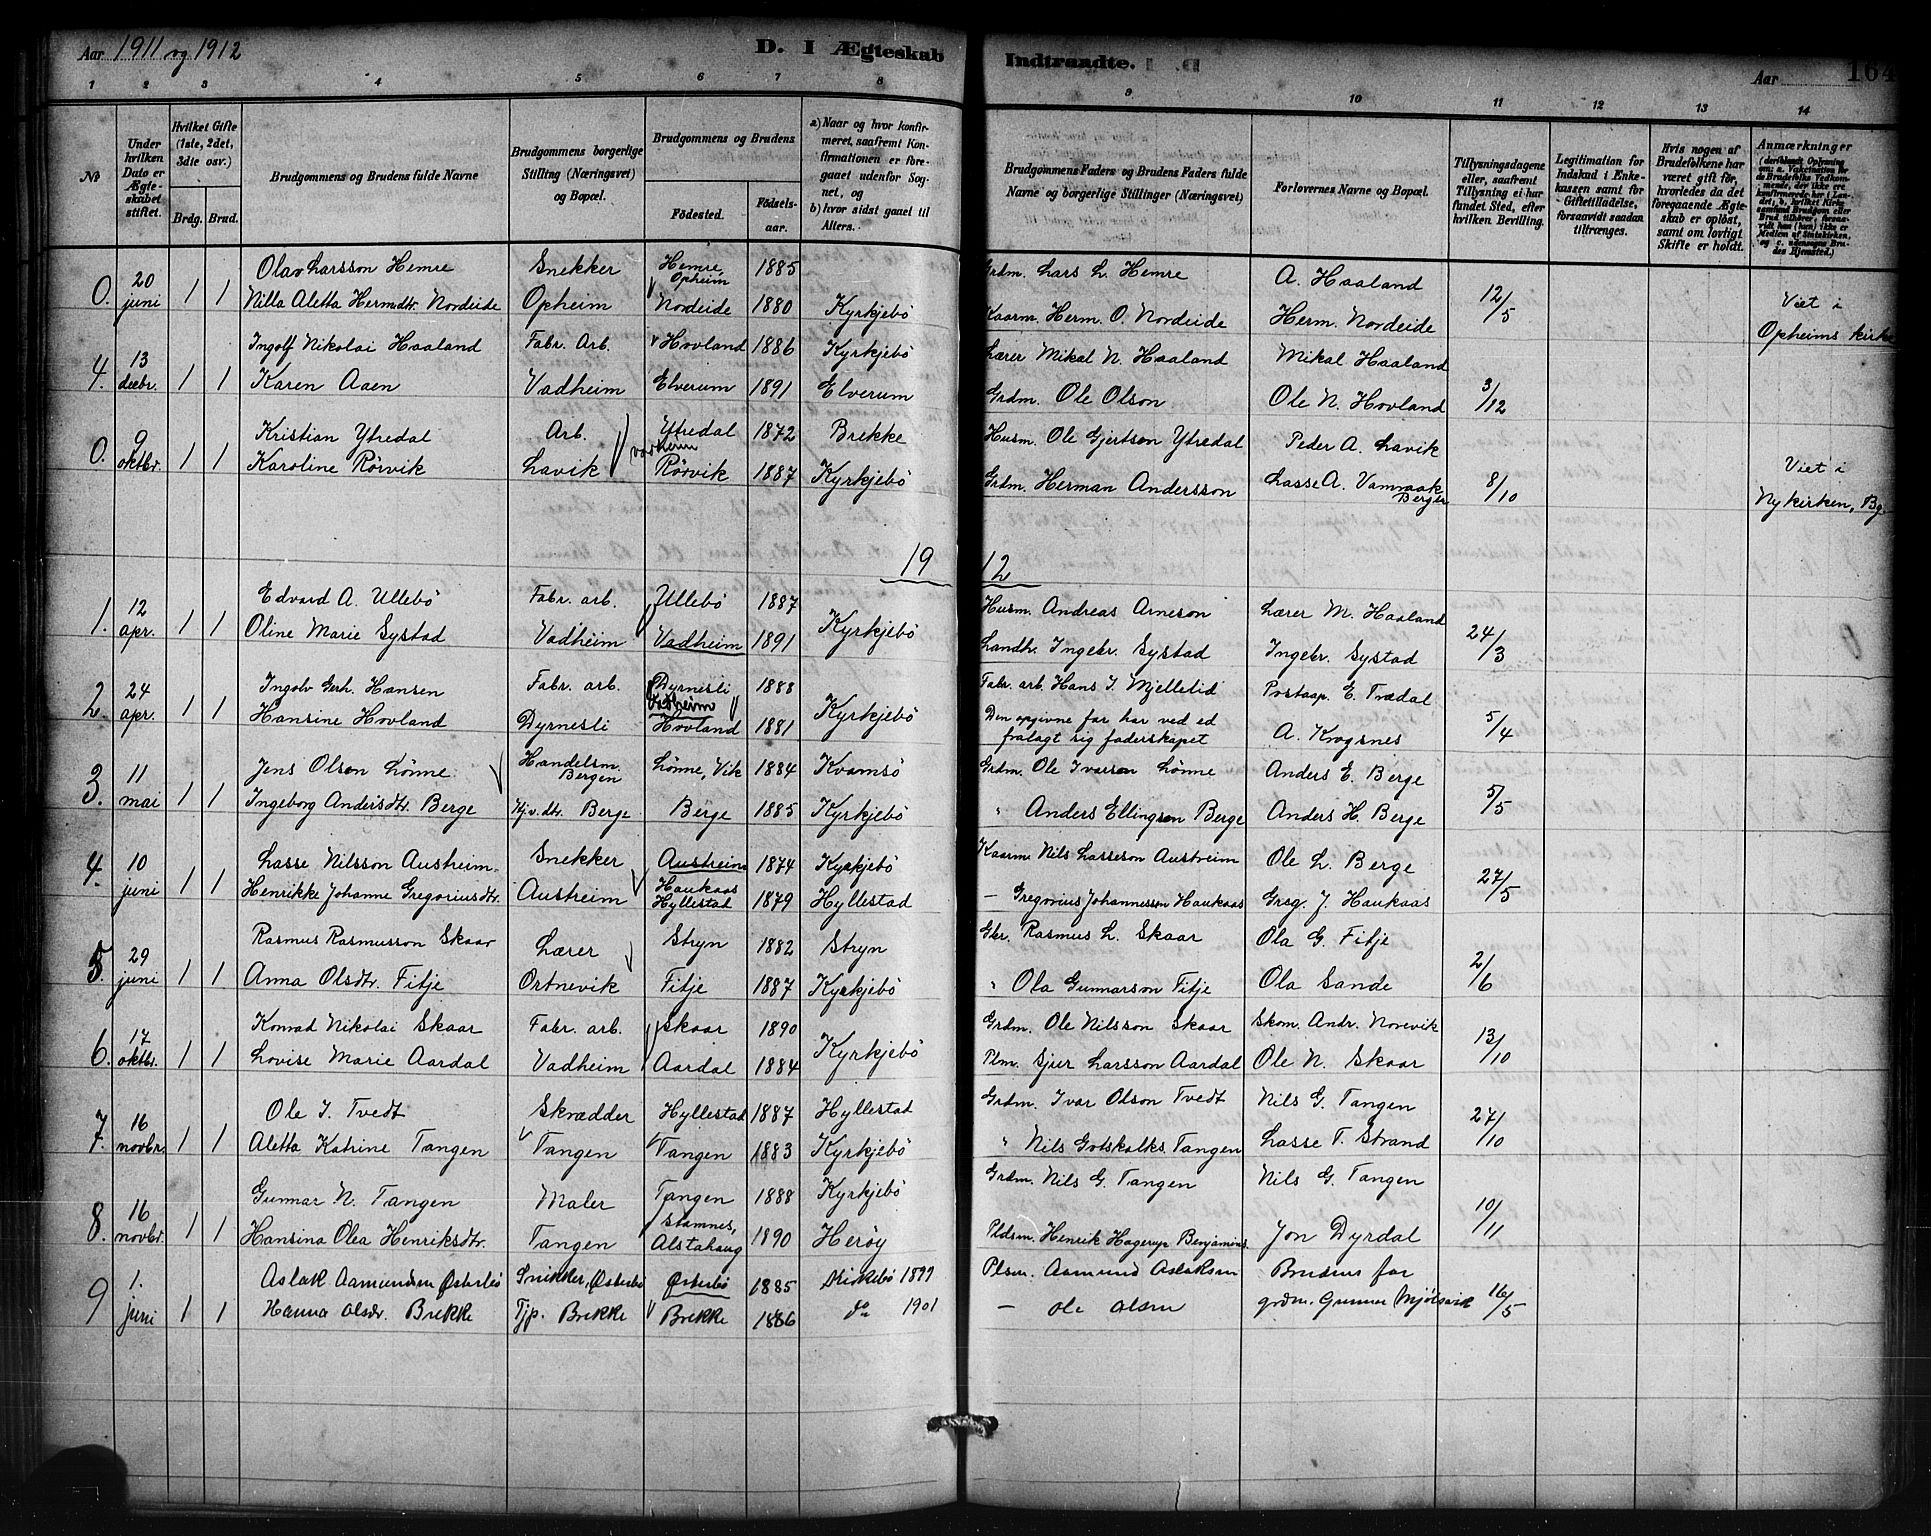 Aar 1911 og 1912
D. I Ægteskab Indtraadte.
Aar 164
1 2 3 4 5 6 7 8 9 10 11 12 13 14
No
Under hvilken Dato er Ægteskabet stiftet.
Hvilket Gifte (1ste, 2det, 3die osv.)
Brdg. Brud.
Brudgommens og Brudens fulde Navne
Brudgommens borgerlige Stilling (Næringsvei) og Bopæl.
Brudgommens og Brudens
Fødested.
Fødselsaar.
a) Naar og hvor konfirmeret, saafremt Konfirmationen er foregaaet udenfor Sognet, og
b) hvor sidst gaaet til Alters.
Brudgommens Faders og Brudens Faders fulde Navne og borgerlige Stillinger (Næringsvei)
Forlovernes Navne og Bopæl.
Tillysningsdagene eller, saafremt Tillysning ei har fundet Sted, efter hvilken Bevilling.
Legitimation for Indskud i Enkekassen samt for Giftetilladelse, forsaavidt saadan tiltrænges.
Hvis nogen af Brudefolkene har været gift før, hvorledes da det foregaaende Ægteskab er opløst, samt om lovligt Skifte er holdt.
Anmærkninger
0. 20 juni 1 1 Olav Larsson Hemre Snekker Hemre, Opheim 1885 Grdm. Lars L. Hemre A. Haaland 12/5 Viet i
Nilla Aletta Hermdtr. Nordeide Opheim Nordeide 1880 Kyrkjebö Kaarm. Herm. O. Nordeide Herm. Nordeide Opheims kirke
4. 13 decbr. 1 1 Ingolf Nikolai Haaland Fabr. Arb. Hovland 1886 Kyrkjebö Lærer Mikal N. Haaland Mikal Haaland 3/12
Karen Aaen Vadheim Elverum 1891 Elverum Grdm. Ole Olson Ole N. Hovland
0. 9 oktbr. 1 1 Kristian Ytredal Arb. Ytredal 1872 Brekke Husm. Ole Gjertson Ytredal Peder A. Lavik 8/10 Viet i
Karoline Rörvik Lavik Rörvik 1887 Kyrkjebö Grdm. Herman Andersson Lasse A. Vamraak Bergen Nykirken, Bg.
1912
1. 12 apr. 1 1 Edvard A. Ullebö Fabr. arb. Ullebö 1887 Kyrkjebö Husm. Andreas Arneson Lærer M. Haaland 24/3
Oline Marie Systad Vadheim Vadheim 1891 Landh. Ingebr. Systad Ingebr. Systad
2. 24 apr. 1 1 Ingolv Gerh. Hansen Fabr. arb. Dyrnesli Vadheim 1888 Kyrkjebö Fabr. arb. Hans I. Mjelletid Postaap. E. Trædal 5/4
Hansine Hovland Dyrnesli Hovland 1881 Den opgivne far har ved ed fralagt sig faderskapet A. Krogsnes
3. 11 mai 1 1 Jens Olson Lönne Handelsm. Bergen Lönne, Vik 1884 Kvamsö Grdm. Ole Ivarson Lönne Anders E. Berge 5/5
Ingeborg Andersdtr. Berge Kjv. dtr. Berge Berge 1885 Kyrkjebö " Anders Ellingson Berge Anders H. Berge
4. 10 juni 1 1 Lasse Nilsson Austreim Snekker Austreim 1874 Kyrkjebö Kaarm. Nils Lasseson Austreim Ole L. Berge 27/5
Henrikke Johanne Gregoriusdtr. Austreim Haukaas Hyllestad 1879 Hyllestad - Gregorius Johannesson Haukaas Greg. J. Haukaas
5. 29 juni 1 1 Rasmus Rasmusson Skaar Lærer Stryn 1882 Stryn Gbr. Rasmus L. Skaar Ola G. Fitje 2/6
Anna Olsdtr. Fitje Ortnevik Fitje 1887 Kyrkjebö " Ola Gunnarson Fitje Ola Sande
6. 17 oktbr. 1 1 Konrad Nikolai Skaar Fabr. arb. Skaar 1890 Kyrkjebö Grdm. Ole Nilsson Skaar Skom. Andr. Norevik 13/10
Lovise Marie Aardal Vadheim Aardal 1884 Plm. Sjur Larsson Aardal Ole N. Skaar
7. 16 novbr. 1 1 Ole I. Tvedt Skrædder Hyllestad 1887 Hyllestad Grdm. Ivar Olson Tvedt Nils G. Tangen 27/10
Aletta Katrine Tangen Tangen Tangen 1883 Kyrkjebö " Nils Gotskalks. Tangen Lasse T. Strand
8. 16 novbr. 1 1 Gunnar N. Tangen Maler Tangen 1888 Kyrkjebö Grdm. Nils G. Tangen Nils G. Tangen 10/11
Hansina Olea Henriksdtr. Tangen Stamnes, Alstahaug 1890 Heröy Pldsm. Henrik Hagerup Benjamins. Jon Dyrdal
9 1. juni 1 1 Aslak Aamundsen Østerbø Snikker, Østerbø Østerbø 1885 Kirkebö 1899 Plsm. Aamund Aslaksen Brudens far 16/5
Hanna Olsdr. Brekke Tjp. Brekke Brekke 1886 do 1901 - Ole Olsen grdm. Gunnar Mjølsvik